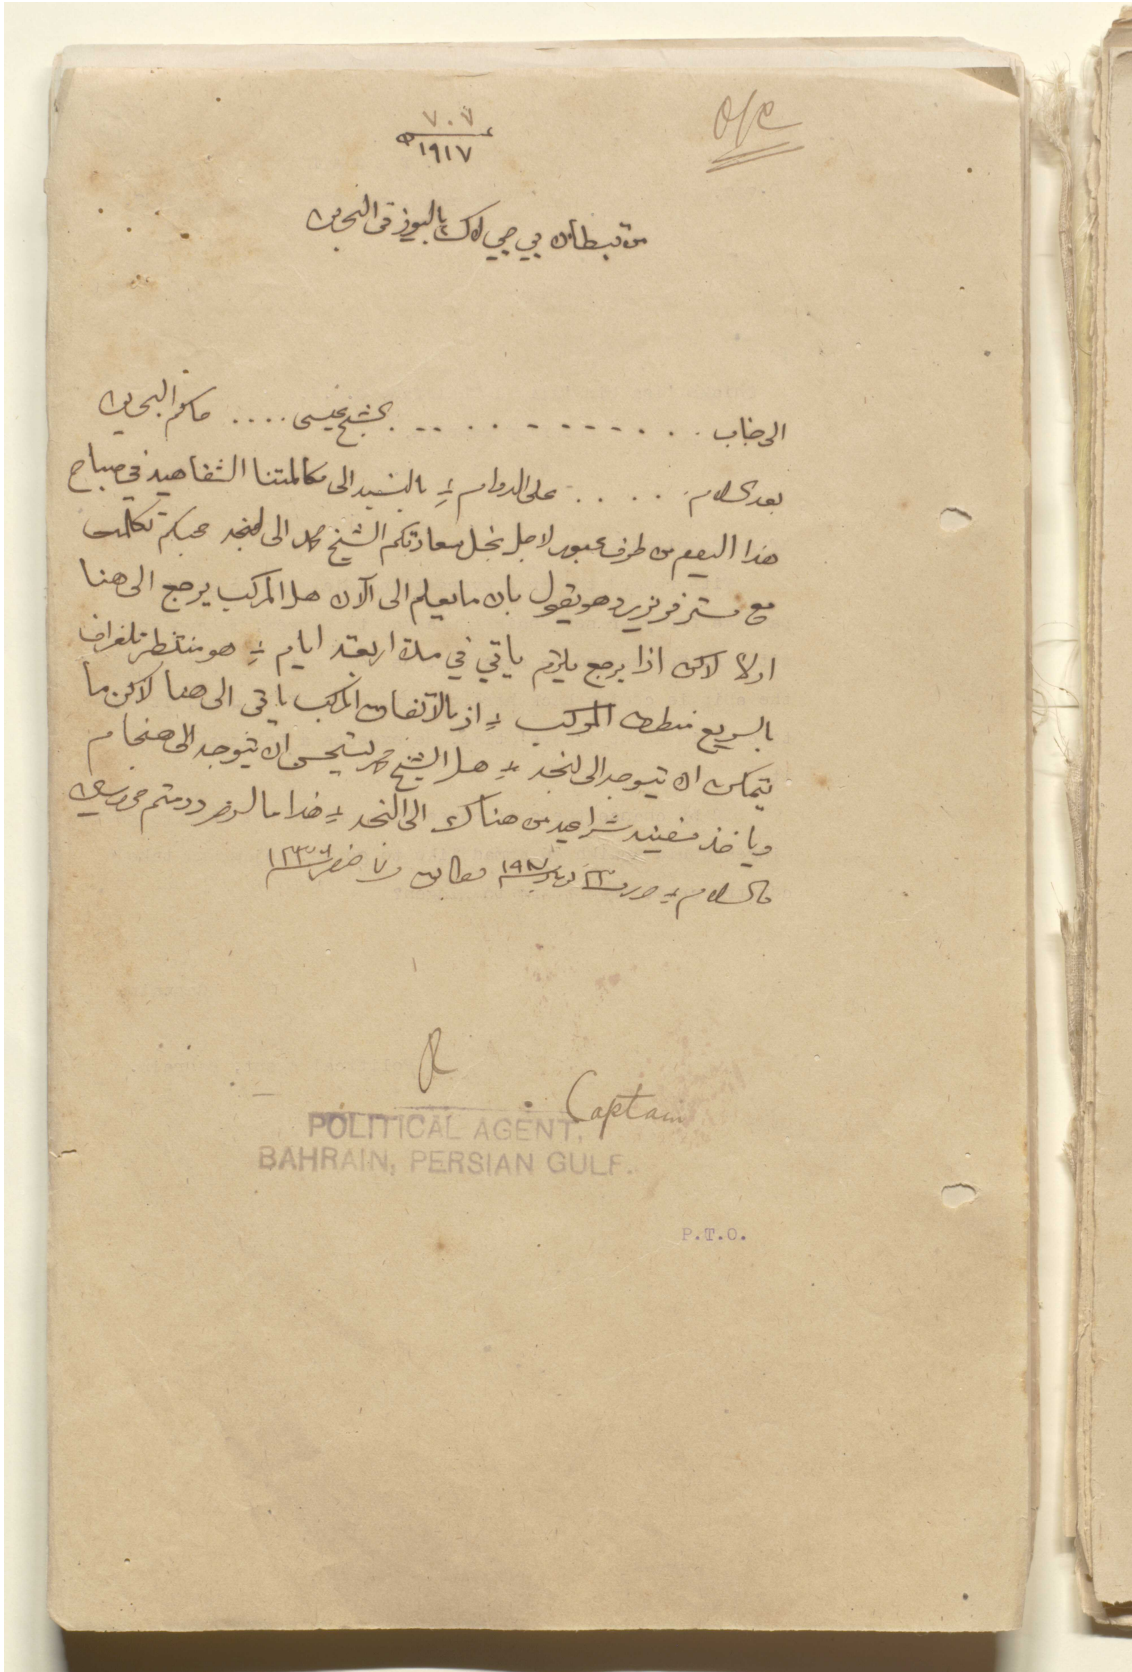 O/C
٧٠٧
١٩١٧
من قبطان بي جي لاك باليوز في البحرين
الى جناب . . . . . . . . . . . الشيخ عيسى . . . . حاكم البحرين
بعد السلام . . . . على الدوام ؛ بالنسبه الى مكالمتنا الشفاهيه في صباح
هذا اليوم من طرف عبور لاجل نجل سعادتكم الشيخ حمد الى لنجه محبكم تكلمت
مع مستر وهو يقول بان ما يعلم الى الآن هل المركب يرجع الى هنا
اولا لاكن اذا يرجع يلزم ياتي في مدة اربعة ايام ؛ هو منتظر تلغراف
بالسريع المركب ؛ اذ بالاتفاق المركب ياتي الى هنا لاكن ما
يتمكن ان يتوجه الى لنجه ؛ هل الشيخ حمد يستحسن ان يتوجه الى هنجام
وياخذ سفينه شراعيه من هناك الى لنجه ؛ هذا ما لزم ودمتم محروسين
والسلام ؛ مطابق صفر
R
Captain
POLITICAL AGENT,
BAHRAIN, PERSIAN GULF.
P.T.O.